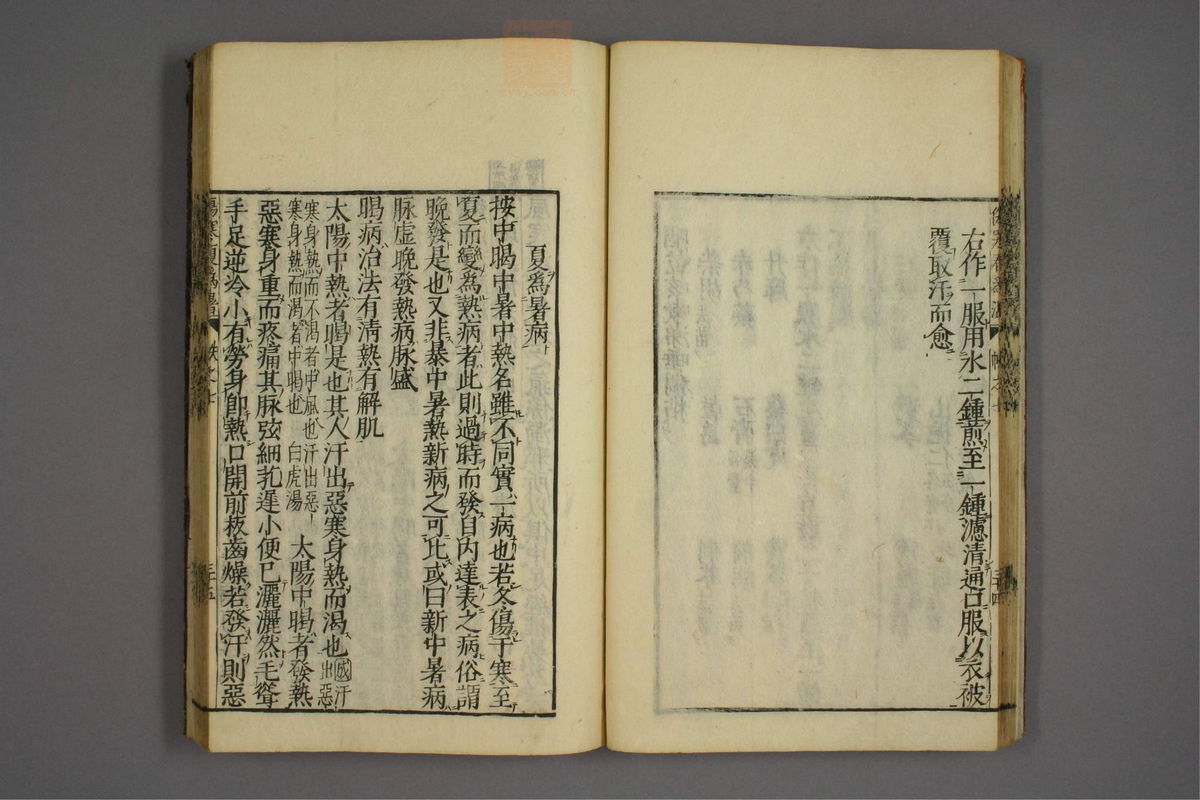 右作一服用水二鍾煎至一鍾濾清通口服以衣被
覆取汗而愈
夏為暑病
按中暍中暑中熱名雖不同實一病也若冬傷于寒至
夏而變為熱病者此則過時而發自内達表之病俗謂
晚發是也又非暴中暑熱新病之可比或曰新中暑病
脉虛晚發熱病脉盛
暍病治法有清熱有解肌
太陽中熱者暍是也其人汗出惡寒身熱而渴也成汗出惡
寒身熱而不渴者中風也汗出惡
寒身熱而渴者中暍也 白虎湯 太陽中暍者發熱
惡寒身重而疼痛其脉弦細芤遲小便已灑灑然毛聳
手足逆冷小有勞身卽熱口開前板齒燥若發汗則惡